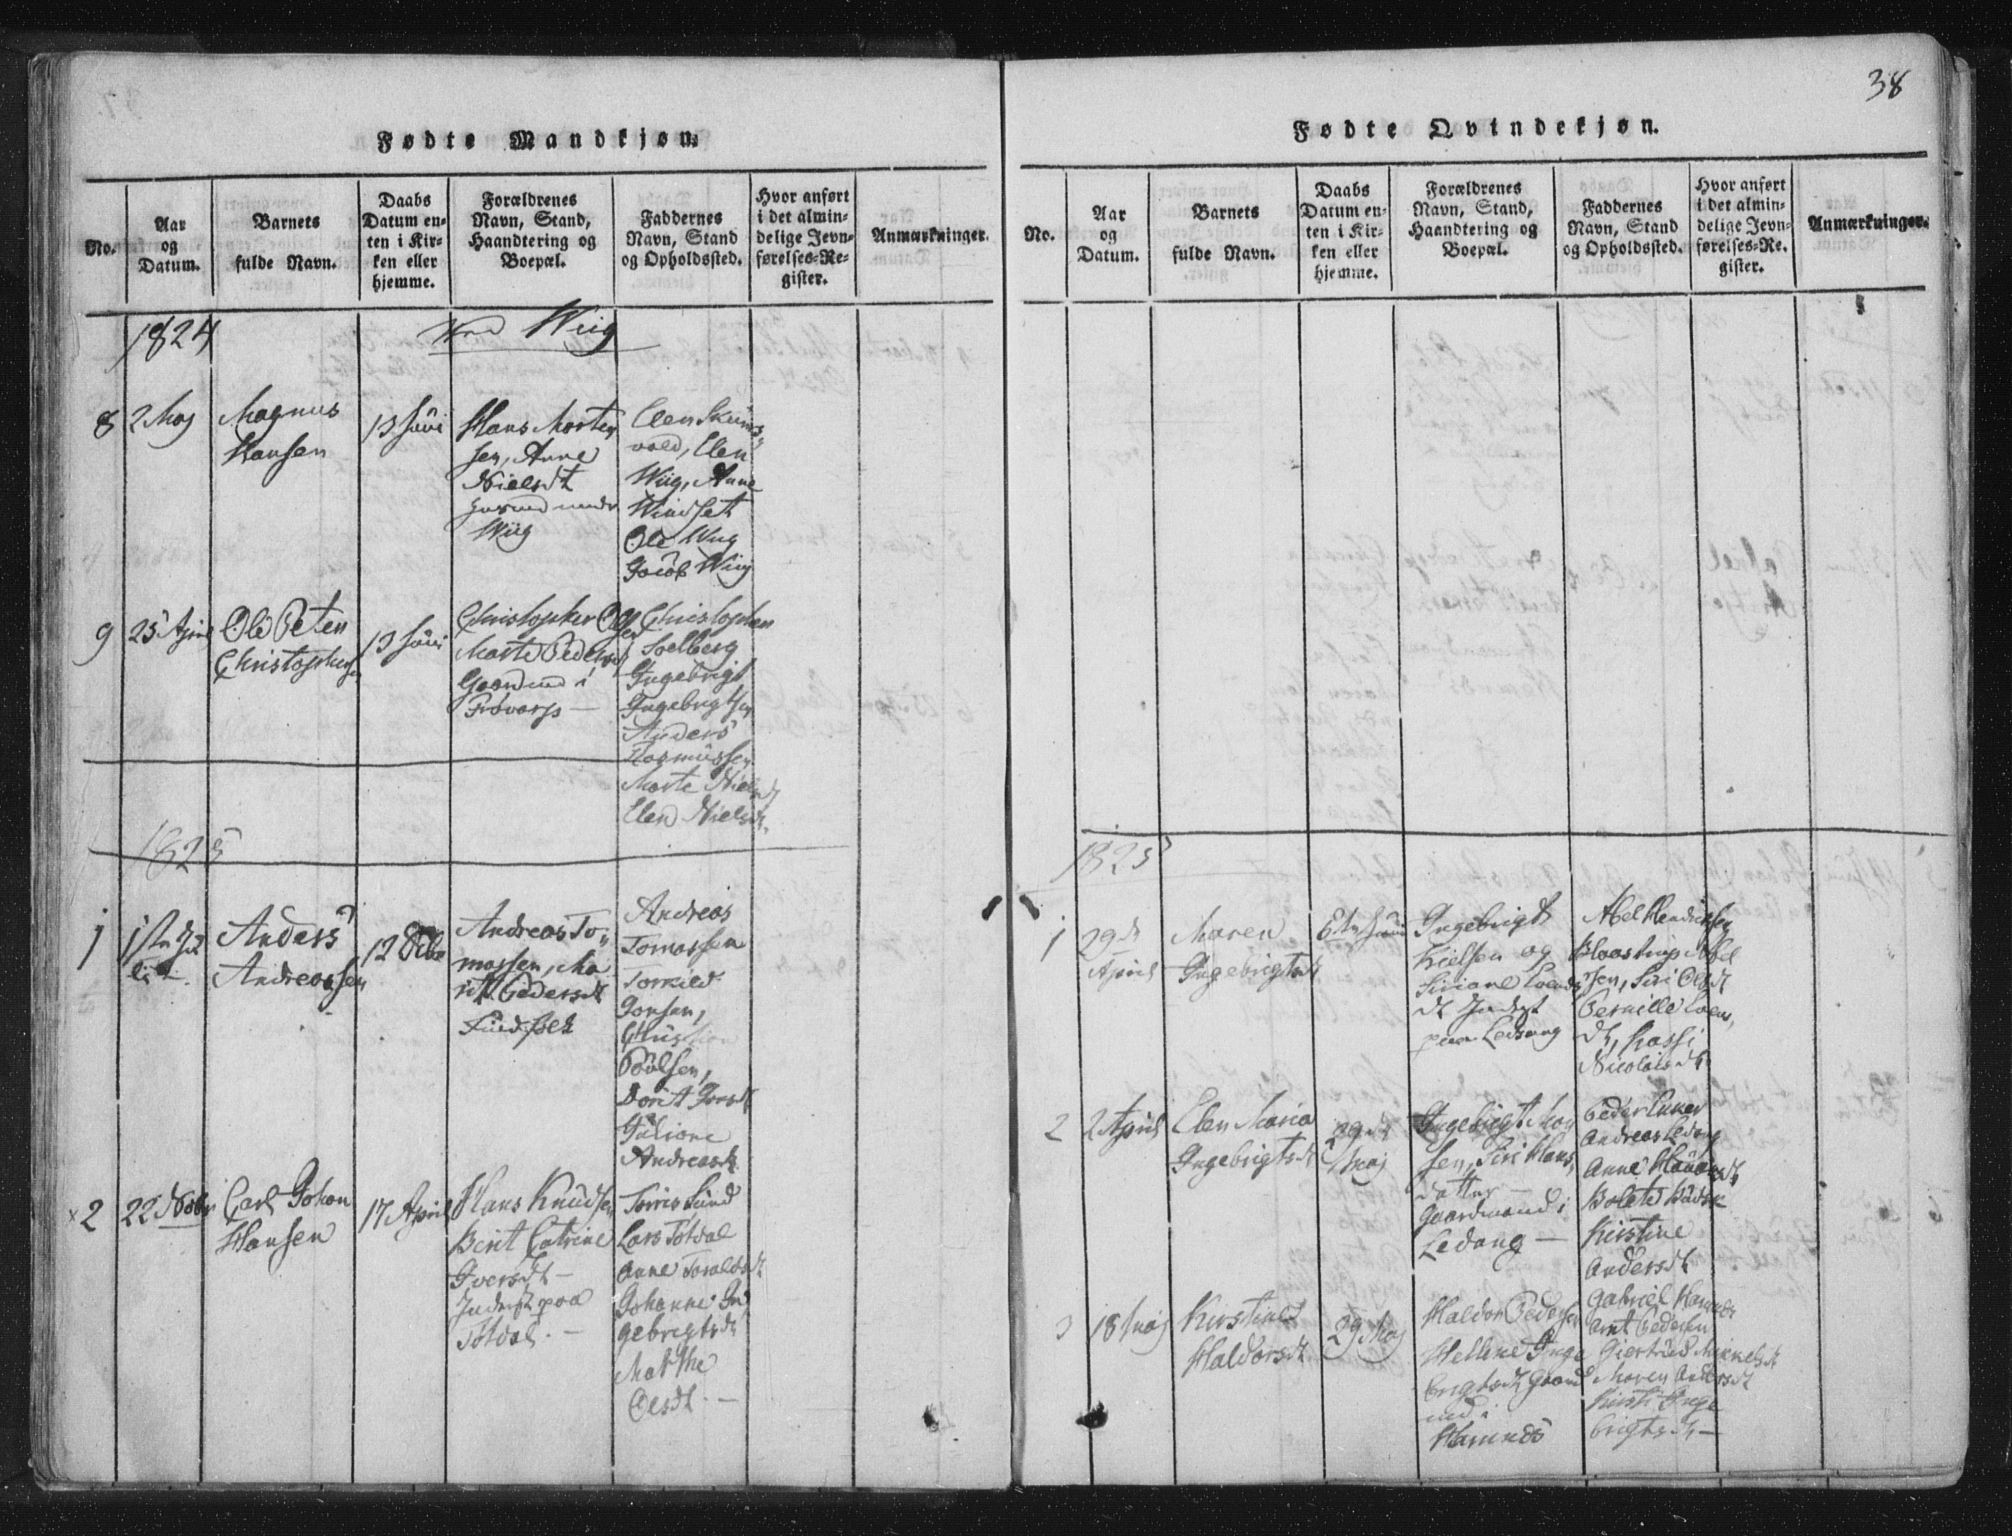 38
Fødte Mandkjøn.
No.
Aar
og
Datum.
Barnets
fulde Navn.
Daabs
Datum en-
ten i Kir-
ken eller
hjemme.
Forældrenes
Navn, Stand,
Haandtering og
Boepæl.
Faddernes
Navn, Stand
og Opholdssted.
Hvor anført
i det almin-
delige Jevn-
førelses-Re-
gister.
Anmærkninger.
1824
Wiig
8
2 Maj
Magnus
Hansen
13 Juni
Hans Morten
sen, Anne
Nielsdt
Wiig
Elen
vold, Elen
Wiig, Anne
Windset
Ole Wiig
Jacob Wiig
9
25 April
Ole Peten
Christophersen
13 Juni
Christopher Olsen
Marte Pedersdt
Gaardmd i
Christopher
Soelberg
Ingebrigt
Ingebrigtsen
Anders
Rasmussen
Marte Nielsdt
Elen Nielsdt
1825
1
Anders
Andreassen
12
Andreas To-
massen, Ma
rit Pedersdt
Andreas
Tomassen
Torkild
Jonsen,
Poulsen,
Dorit Jonsdt
Juliane
Andreasdt
2
22 Novbr
Carl Johan
Hansen
17 April
Hans Knudsen
Berit Catrine
Iversdt -
Inderst paa
Totdal. -
Torris Sund
Lars Totdal
Anne Toraldsdt
Johanne In
gebrigtsdt
Matthe
Olsdt. -
Fødte Qvindekjøn.
No.
Aar
og
Datum.
Barnets
fulde Navn.
Daabs
Datum en-
ten i Kir-
ken eller
hjemme.
Forældrenes
Navn, Stand,
Haandtering og
Boepæl.
Faddernes
Navn, Stand
og Opholdssted.
Hvor anført
i det almin-
delige Jevn-
førelses-Re-
gister.
Anmærkninger.
1825
1
29de
April
Maren
Ingebrigtsdt
6te Juni
Ingebrigt
Kielsen og
dt Inderst
paa Ledang
Abel Hendriksen
sen, Siri Olsdt
Pernille
dt,
Nicolaisdt
2
2 April
Elen Maria
Ingebrigtsdt
29de
Maj
Ingebrigt Mog
sen, Siri Hans
datter -
Gaardmand i
Ledang -
Peder
Andreas Ledang
Anne
Bolete
Kirstine
Andersdt
3
18 Maj
Kirstine
Haldorsdt
29 Maj
Haldor Pedersen
Hellene Inge
brigtsdt Gaard
md i
Hamnes
Gabriel Hamnes
Arnt Pedersen
Giertrud Mikkelsdt
Maren Andersdt
Kirsti Inge
brigtsdt -